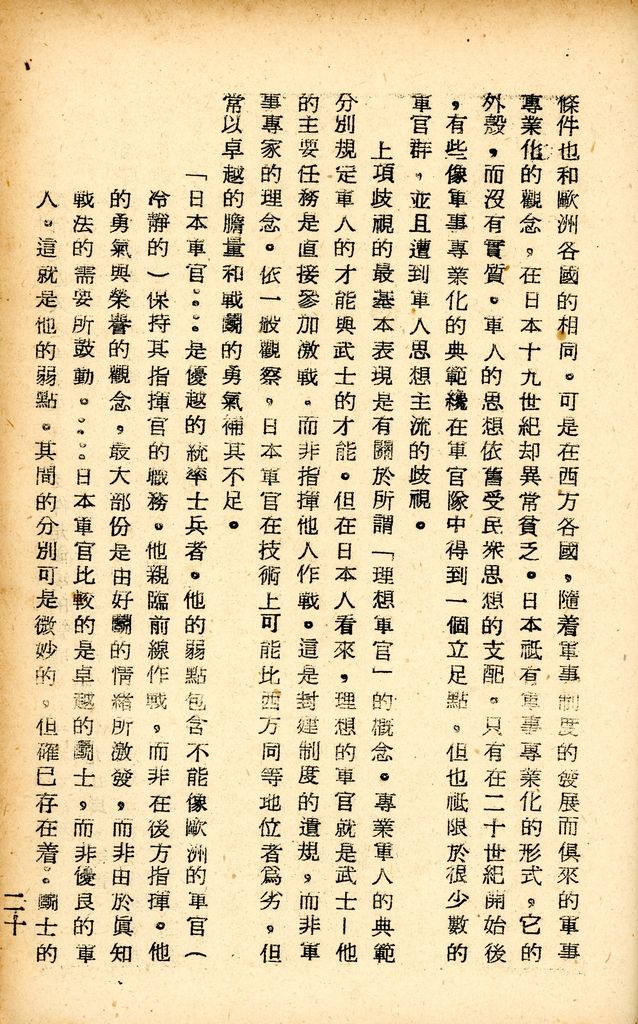 條件也和歐洲各國的相同。可是在西方各國，隨着軍事制度的發展而俱來的軍事
專業化的觀念，在日本十九世紀却異常貧乏。日本祗有軍事專業化的形式，它的
外殼，而沒有實質。軍人的思想依舊受民衆思想的支配。只有在二十世紀開始後
，有些像軍事專業化的典範纔在軍官隊中得到一個立足點，但也祗限於很少數的
軍官群，並且遭到軍人思想主流的歧視。
上項歧視的最基本表現是有關於所謂「理想軍官」的概念。專業軍人的典範
分別規定軍人的才能與武士的才能。但在日本人看來，理想的軍官就是武士—他
的主要任務是直接參加激戰，而非指揮他人作戰。這是封建制度的遺規，而非軍
事專家的理念。依一般觀察，日本軍官在技術上可能比西方同等地位者爲劣，但
常以卓越的膽量和戰鬭的勇氣補其不足。
「日本軍官。。。。是優越的統率士兵者。他的弱點包含不能像歐洲的軍官（
冷靜的）保持其指揮官的職務。他親臨前線作戰，而非在後方指揮。他
的勇氣與榮譽的觀念，最大部份是由好鬭的情緒所激發，而非由於眞知
戰法的需要所鼓動。。。。日本軍官比較的是卓越的鬭士，而非優良的軍
人。這就是他的弱點。其間的分別可是微妙的，但確已存在着。鬭士的
二十